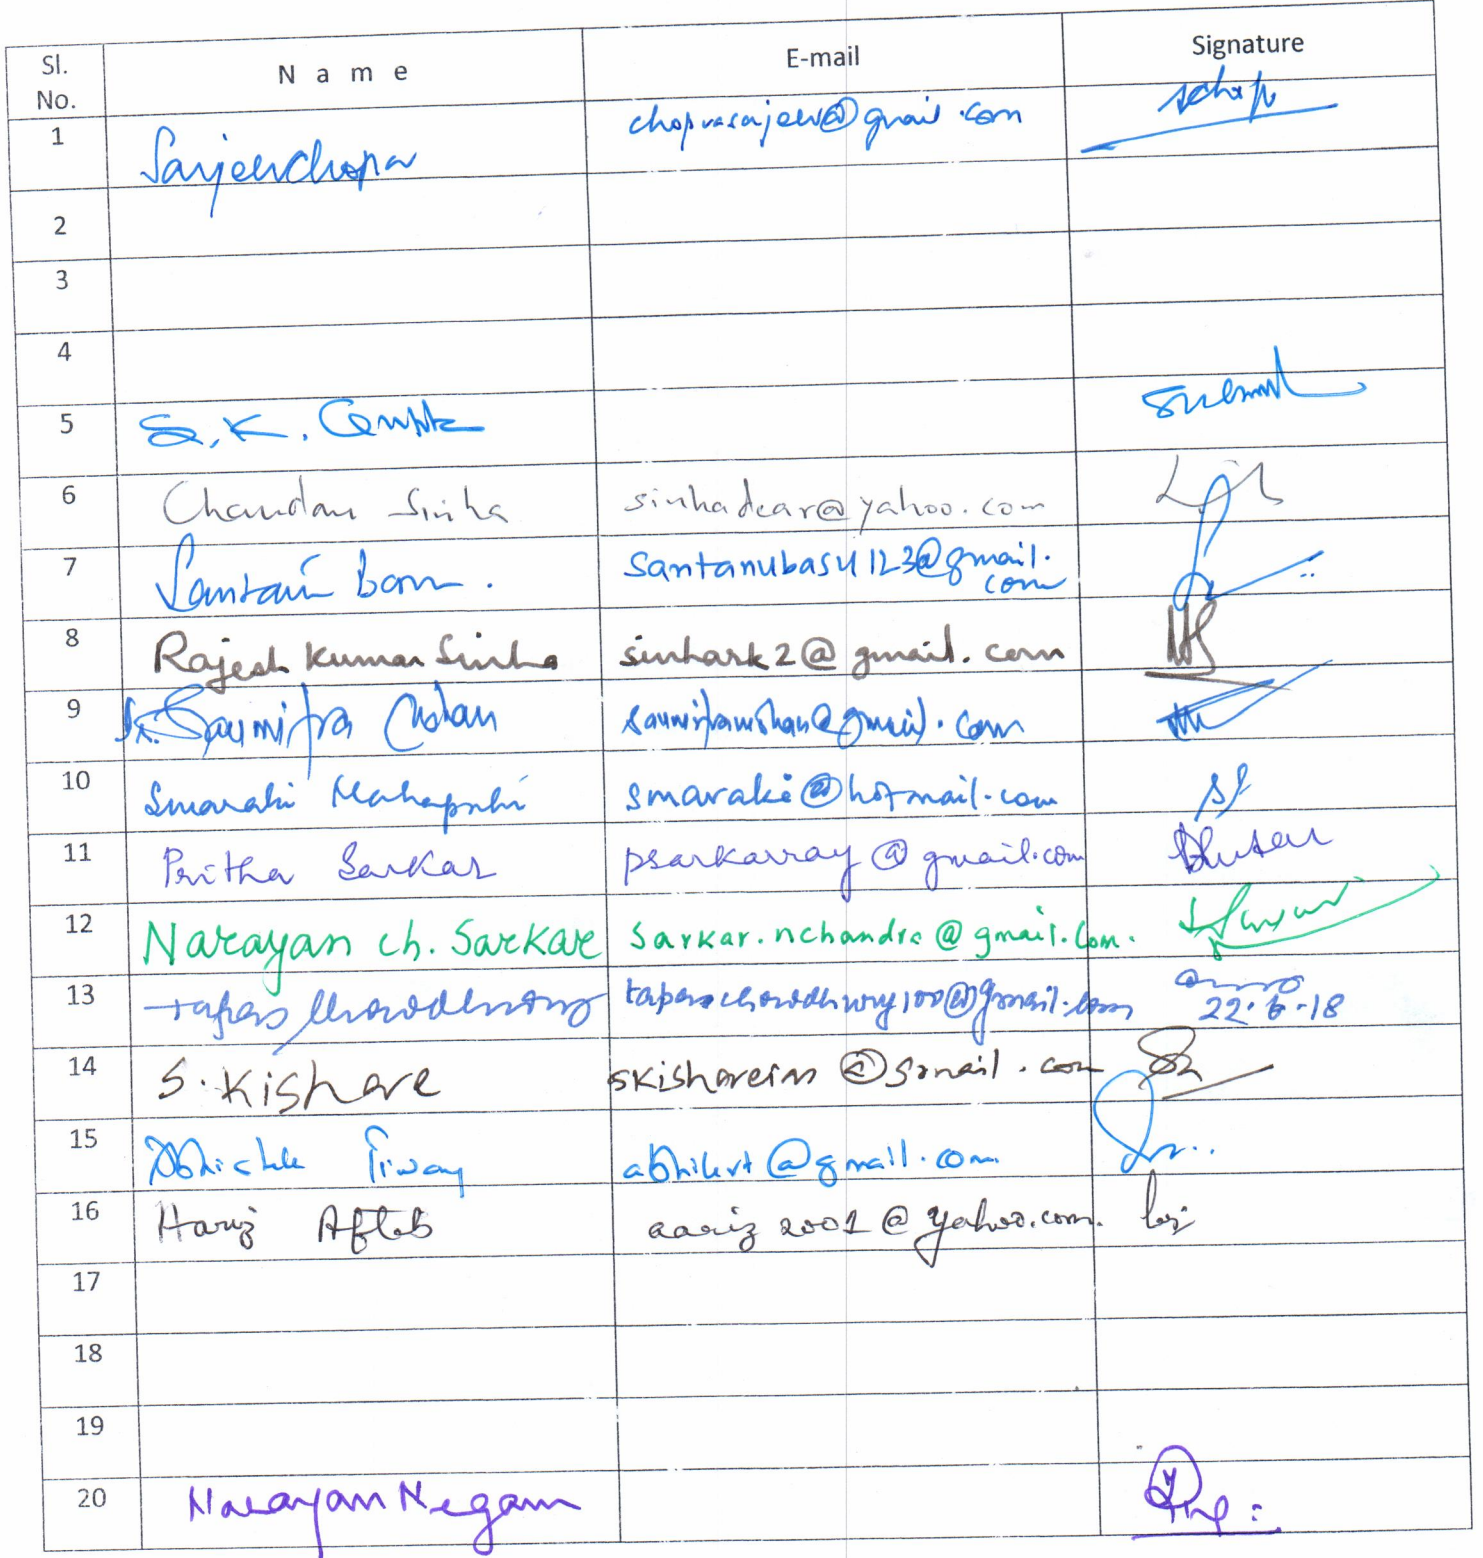 Sl. No. N a m e E-mail Signature
1 Sanjeev Chopra choprasanjeev@gmail.com
2
3
4
5 S.K. Gupta
6 Chandan Sinha sinhadear@yahoo.com
7 Santanu Basu. santanubasu123@gmail.
com
8 Rajesh Kumar Sinha sinhark2@gmail.com
9 Dr. Saumitra Mohan saumitramohan@gmail.com
10 Smaraki Mahapatra smaraki@hotmail.com
11 Pritha Sarkar psarkarray@gmail.com
12 Narayan ch. Sarkar sarkar.nchandra@gmail.com.
13 Tapas Chowdhury tapaschowdhury100@gmail.com
22.6.18
14 S. Kishore skishoreias@gmail.com
15 Abhishek Tiwary abhikvt@gmail.com
16 Hariz Aftab aariz2001@yahoo.com.
17
18
19
20 Narayan Negam